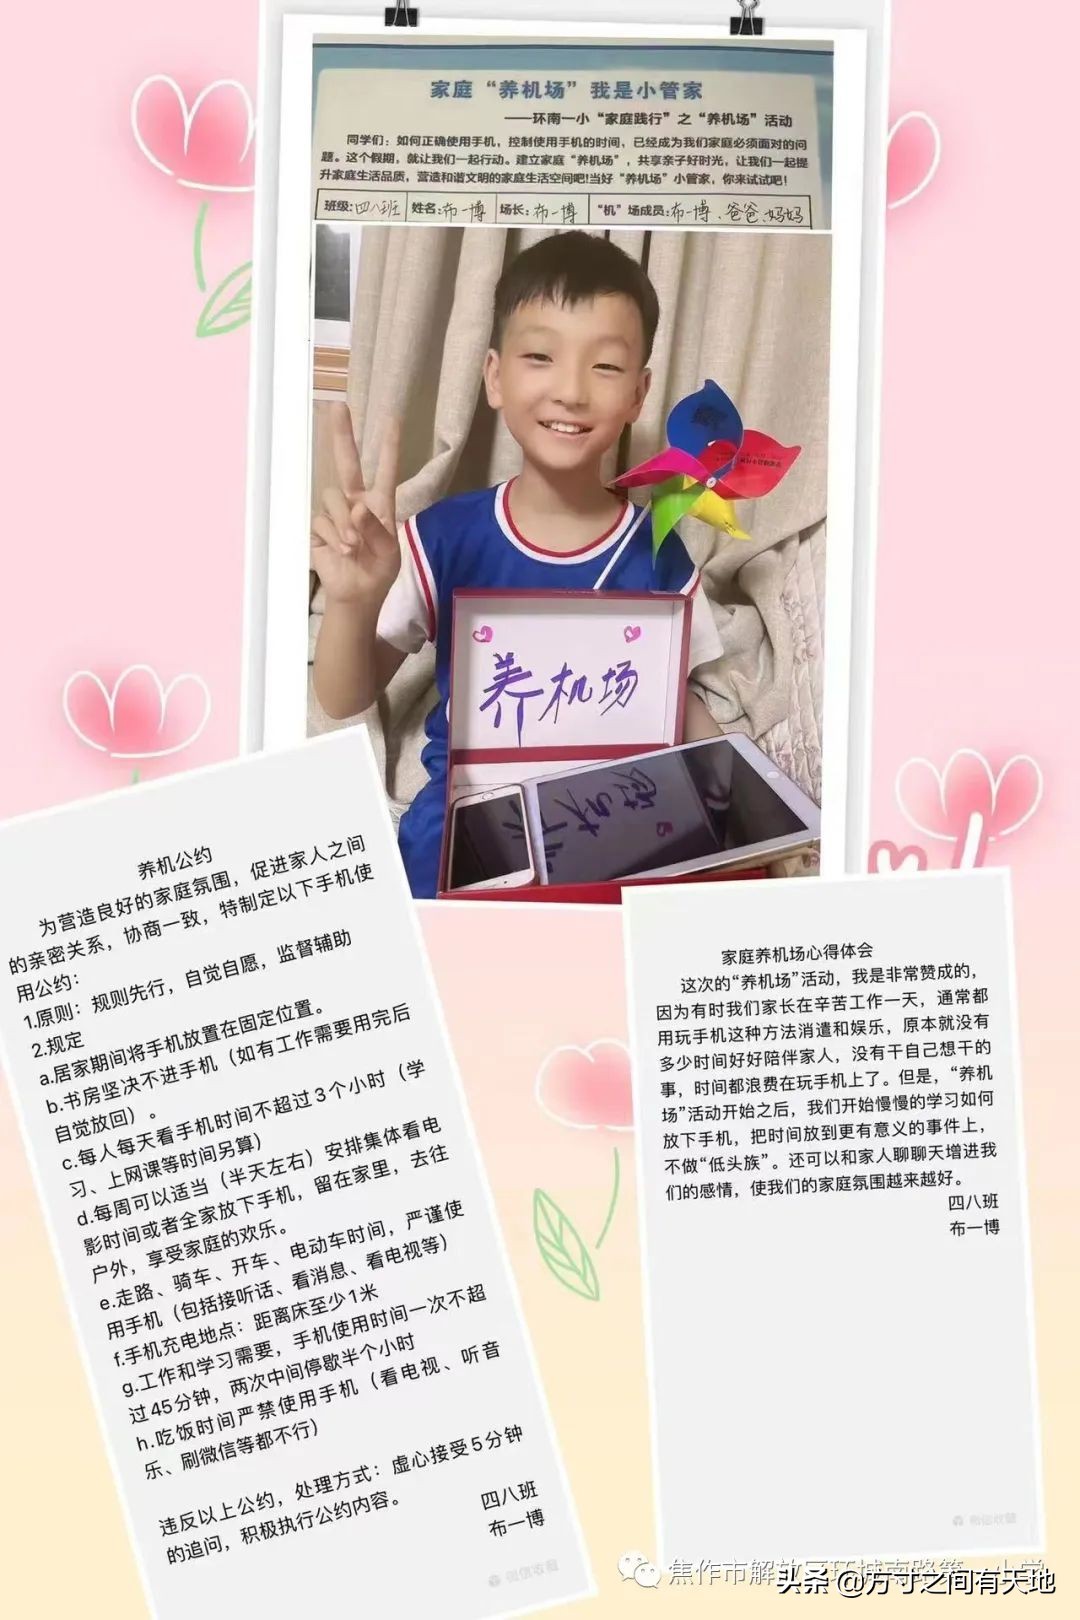 家庭“养机场”我是小管家
——环南一小“家庭践行”之“养机场”活动
同学们：如何正确使用手机，控制使用手机的时间，已经成为我们家庭必须面对的问
题。这个假期，就让我们一起行动。建立家庭“养机场”，共享亲子好时光，让我们一起提
升家庭生活品质，营造和谐文明的家庭生活空间吧!当好“养机场”小管家，你来试试吧!
班级:四八班 姓名:布一博 场长:布一博 “机”场成员:布一博、爸爸、妈妈
养机场
养机公约
为营造良好的家庭氛围，促进家人之间
的亲密关系，协商一致，特制定以下手机使
用公约：
1.原则：规则先行，自觉自愿，监督辅助
2.规定
a.居家期间将手机放置在固定位置。
b.书房坚决不进手机（如有工作需要用完后
自觉放回）。
c.每人每天看手机时间不超过3个小时（学
习、上网课等时间另算）
d.每周可以适当（半天左右）安排集体看电
影时间或者全家放下手机，留在家里，去往
户外，享受家庭的欢乐。
e.走路、骑车、开车、电动车时间，严谨使
用手机（包括接听话、看消息、看电视等）
f.手机充电地点：距离床至少1米
g.工作和学习需要，手机使用时间一次不超
过45分钟，两次中间停歇半个小时
h.吃饭时间严禁使用手机（看电视、听音
乐、刷微信等都不行）
违反以上公约，处理方式：虚心接受5分钟
的追问，积极执行公约内容。
四八班
布一博
微信收藏
家庭养机场心得体会
这次的“养机场”活动，我是非常赞成的，
因为有时我们家长在辛苦工作一天，通常都
用玩手机这种方法消遣和娱乐，原本就没有
多少时间好好陪伴家人，没有干自己想干的
事，时间都浪费在玩手机上了。但是，“养机
场”活动开始之后，我们开始慢慢的学习如何
放下手机，把时间放到更有意义的事件上，
不做“低头族”。还可以和家人聊聊天增进我
们的感情，使我们的家庭氛围越来越好。
四八班
布一博
微信收藏
焦作市解放区环城南路第一小学
头条 @方寸之间有天地